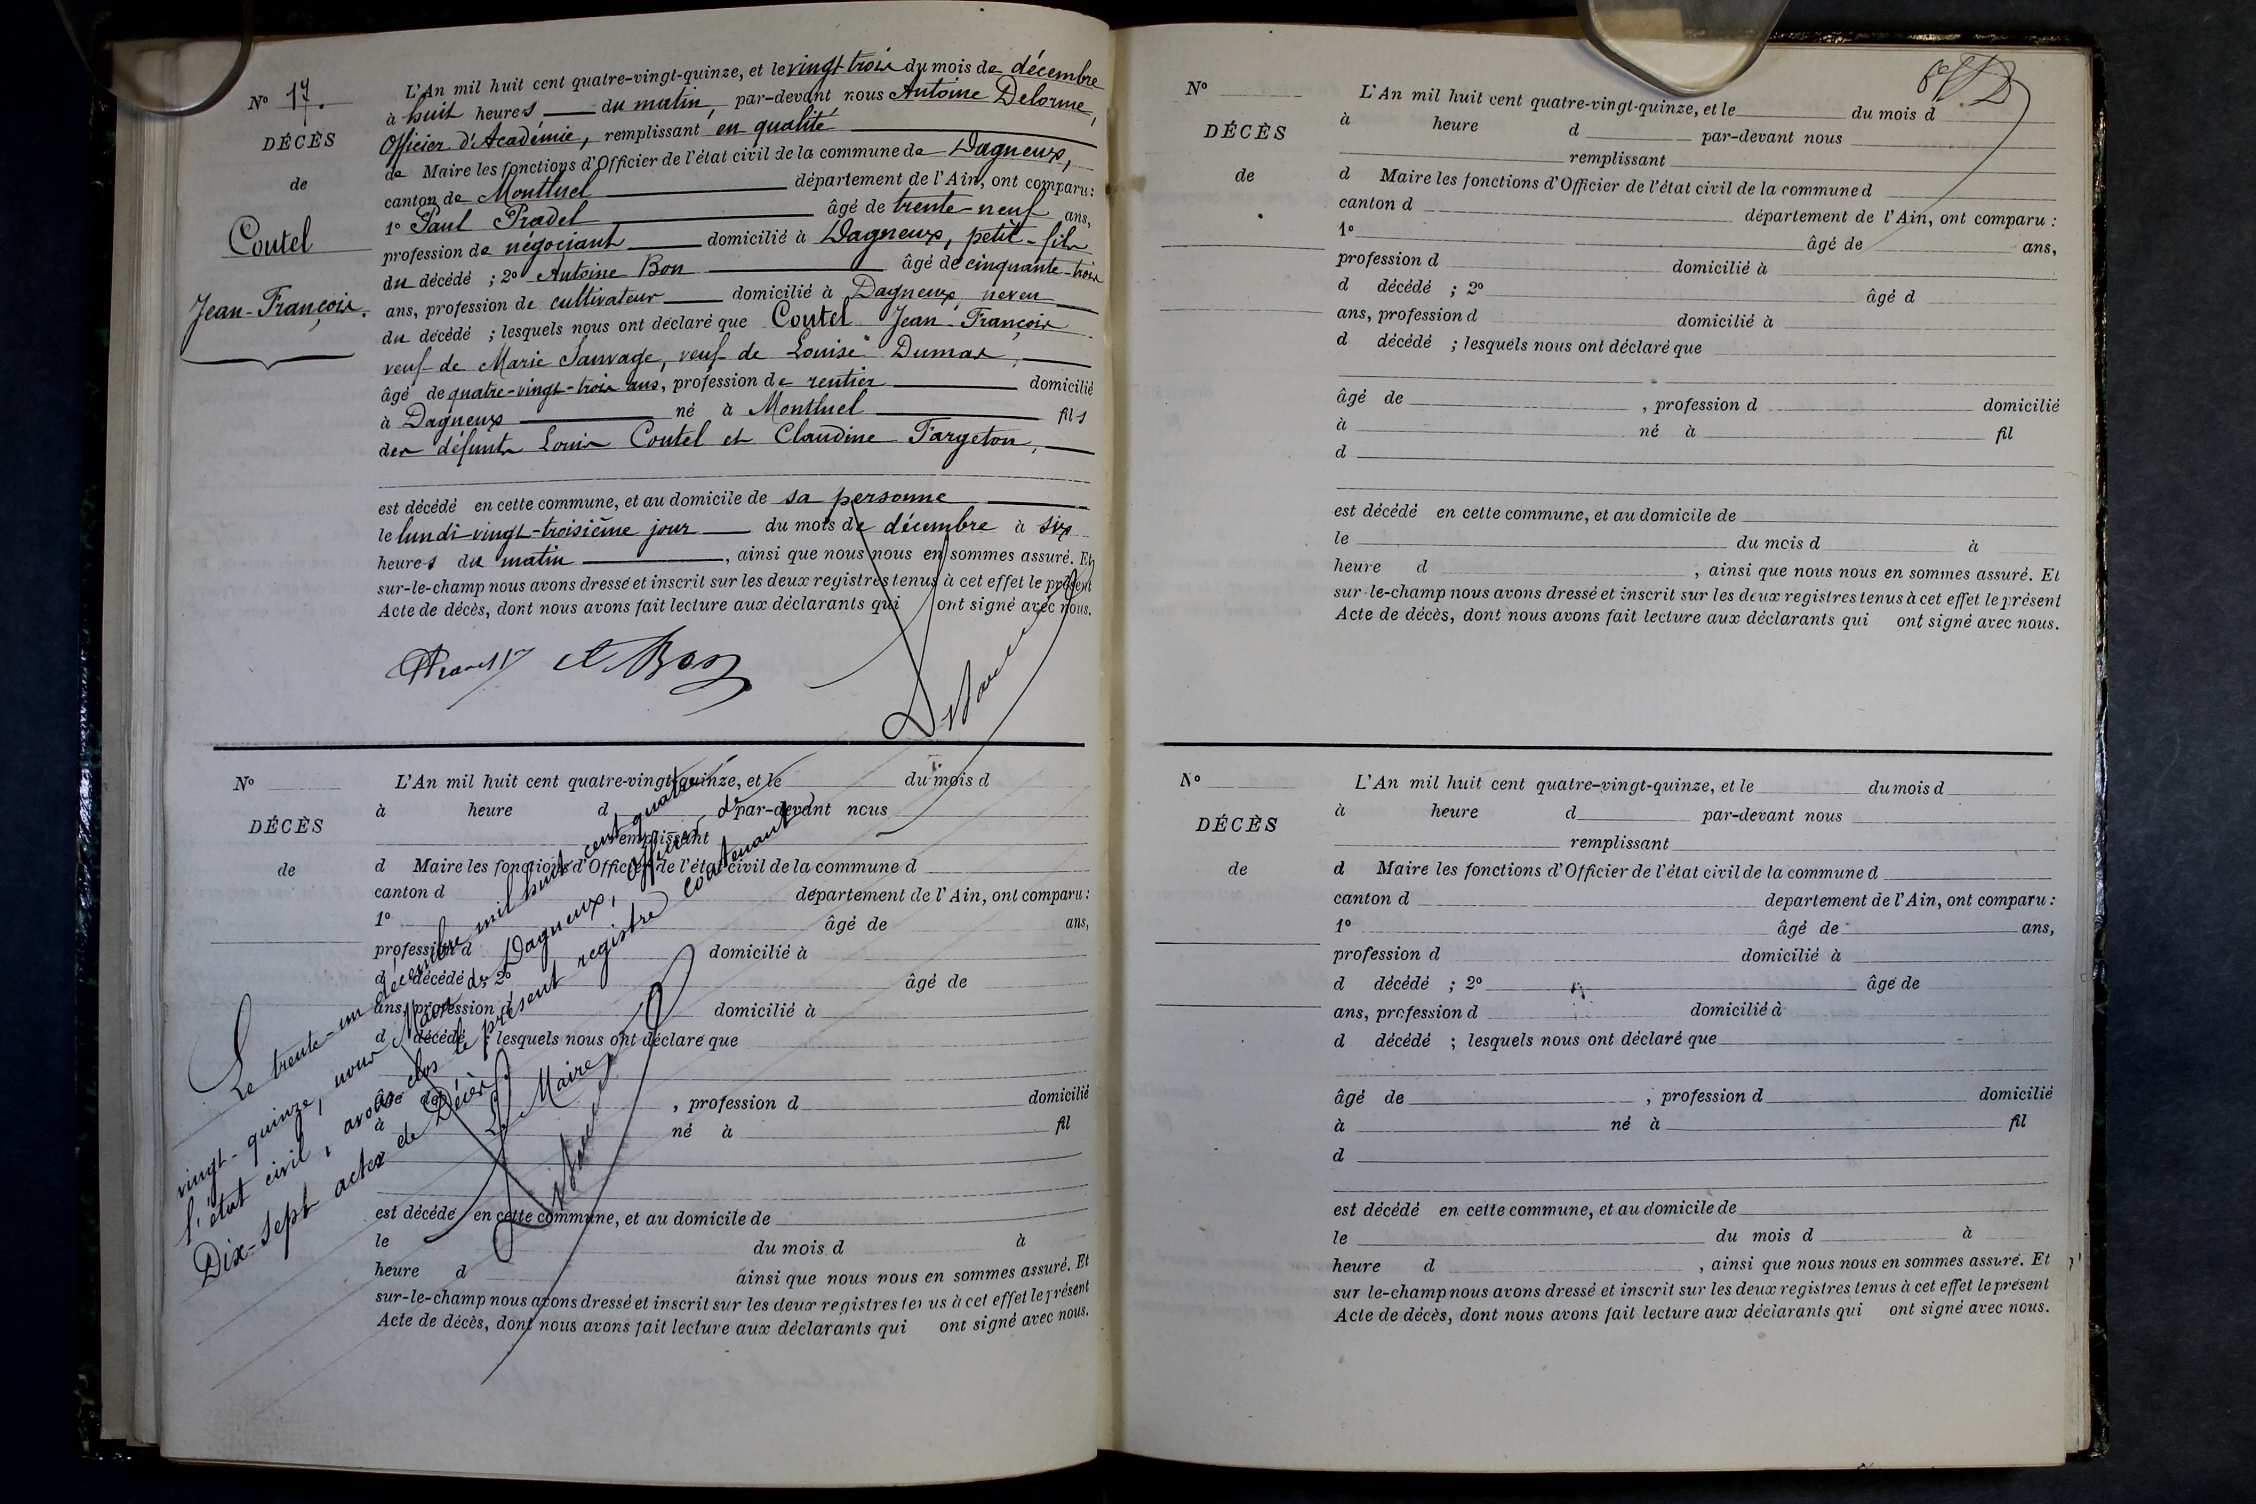 N° 17.
DÉCÈS
de
Coutel
Jean-François.
L'An mil huit cent quatre-vingt-quinze, et le vingt trois du mois de décembre
à huit heures du matin, par-devant nous Antoine Delorme,
Officier d'Académie, remplissant en qualité
de Maire les fonctions d'Officier de l'état civil de la commune de Dagneux,
canton de Montluel département de l'Ain, ont comparu :
1° Paul Pradel âgé de trente-neuf ans,
profession de négociant domicilié à Dagneux, petit-fils
du décédé ; 2° Antoine Bon âgé de cinquante-trois
ans, profession de cultivateur domicilié à Dagneux, neveu
du décédé ; lesquels nous ont déclaré que Coutel Jean-François
veuf de Marie Sauvage, veuf de Louise Dumas,
âgé de quatre-vingt-trois ans, profession de rentier domicilié
à Dagneux né à Montluel fils
des défunts Louis Coutel et Claudine Fargeton,
est décédé en cette commune, et au domicile de sa personne
le lundi vingt-troisième jour du mois de décembre à six
heures du matin, ainsi que nous nous en sommes assuré. Et
sur-le-champ nous avons dressé et inscrit sur les deux registres tenus à cet effet le présent
Acte de décès, dont nous avons fait lecture aux déclarants qui ont signé avec nous.
A. Bon
N°
DÉCÈS
de
L'An mil huit cent quatre-vingt-quinze, et le du mois d
à heure d par-devant nous
remplissant
d Maire les fonctions d'Officier de l'état civil de la commune d
canton d département de l'Ain, ont comparu :
1° âgé de ans,
profession d domicilié à
d décédé ; 2° âgé de
ans, profession d domicilié à
d décédé ; lesquels nous ont déclaré que
âgé de , profession d domicilié
à né à fil
est décédé en cette commune, et au domicile de
le du mois d à
heure d ainsi que nous nous en sommes assuré. Et
sur-le-champ nous avons dressé et inscrit sur les deux registres tenus à cet effet le présent
Acte de décès, dont nous avons fait lecture aux déclarants qui ont signé avec nous.
Le trente-un décembre mil huit cent quatre
vingt-quinze, nous Maire de Dagneux, officier de
l'état civil, avons clos le présent registre contenant
Dix-sept actes de Décès.
Le Maire
N°
DÉCÈS
de
L'An mil huit cent quatre-vingt-quinze, et le du mois d
à heure d par-devant nous
remplissant
d Maire les fonctions d'Officier de l'état civil de la commune d
canton d département de l'Ain, ont comparu :
1° âgé de ans,
profession d domicilié à
d décédé ; 2° âgé d
ans, profession d domicilié à
d décédé ; lesquels nous ont déclaré que
âgé de , profession d domicilié
à né à fil
d
est décédé en cette commune, et au domicile de
le du mois d à
heure d , ainsi que nous nous en sommes assuré. Et
sur-le-champ nous avons dressé et inscrit sur les deux registres tenus à cet effet le présent
Acte de décès, dont nous avons fait lecture aux déclarants qui ont signé avec nous.
N°
DÉCÈS
de
L'An mil huit cent quatre-vingt-quinze, et le du mois d
à heure d par-devant nous
remplissant
d Maire les fonctions d'Officier de l'état civil de la commune d
canton d departement de l'Ain, ont comparu :
1° âgé de ans,
profession d domicilié à
d décédé ; 2° âgé de
ans, profession d domicilié à
d décédé ; lesquels nous ont déclaré que
âgé de , profession d domicilié
à né à fil
d
est décédé en cette commune, et au domicile de
le du mois d à
heure d , ainsi que nous nous en sommes assuré. Et
sur le-champ nous avons dressé et inscrit sur les deux registres tenus à cet effet le présent
Acte de décès, dont nous avons fait lecture aux déclarants qui ont signé avec nous.